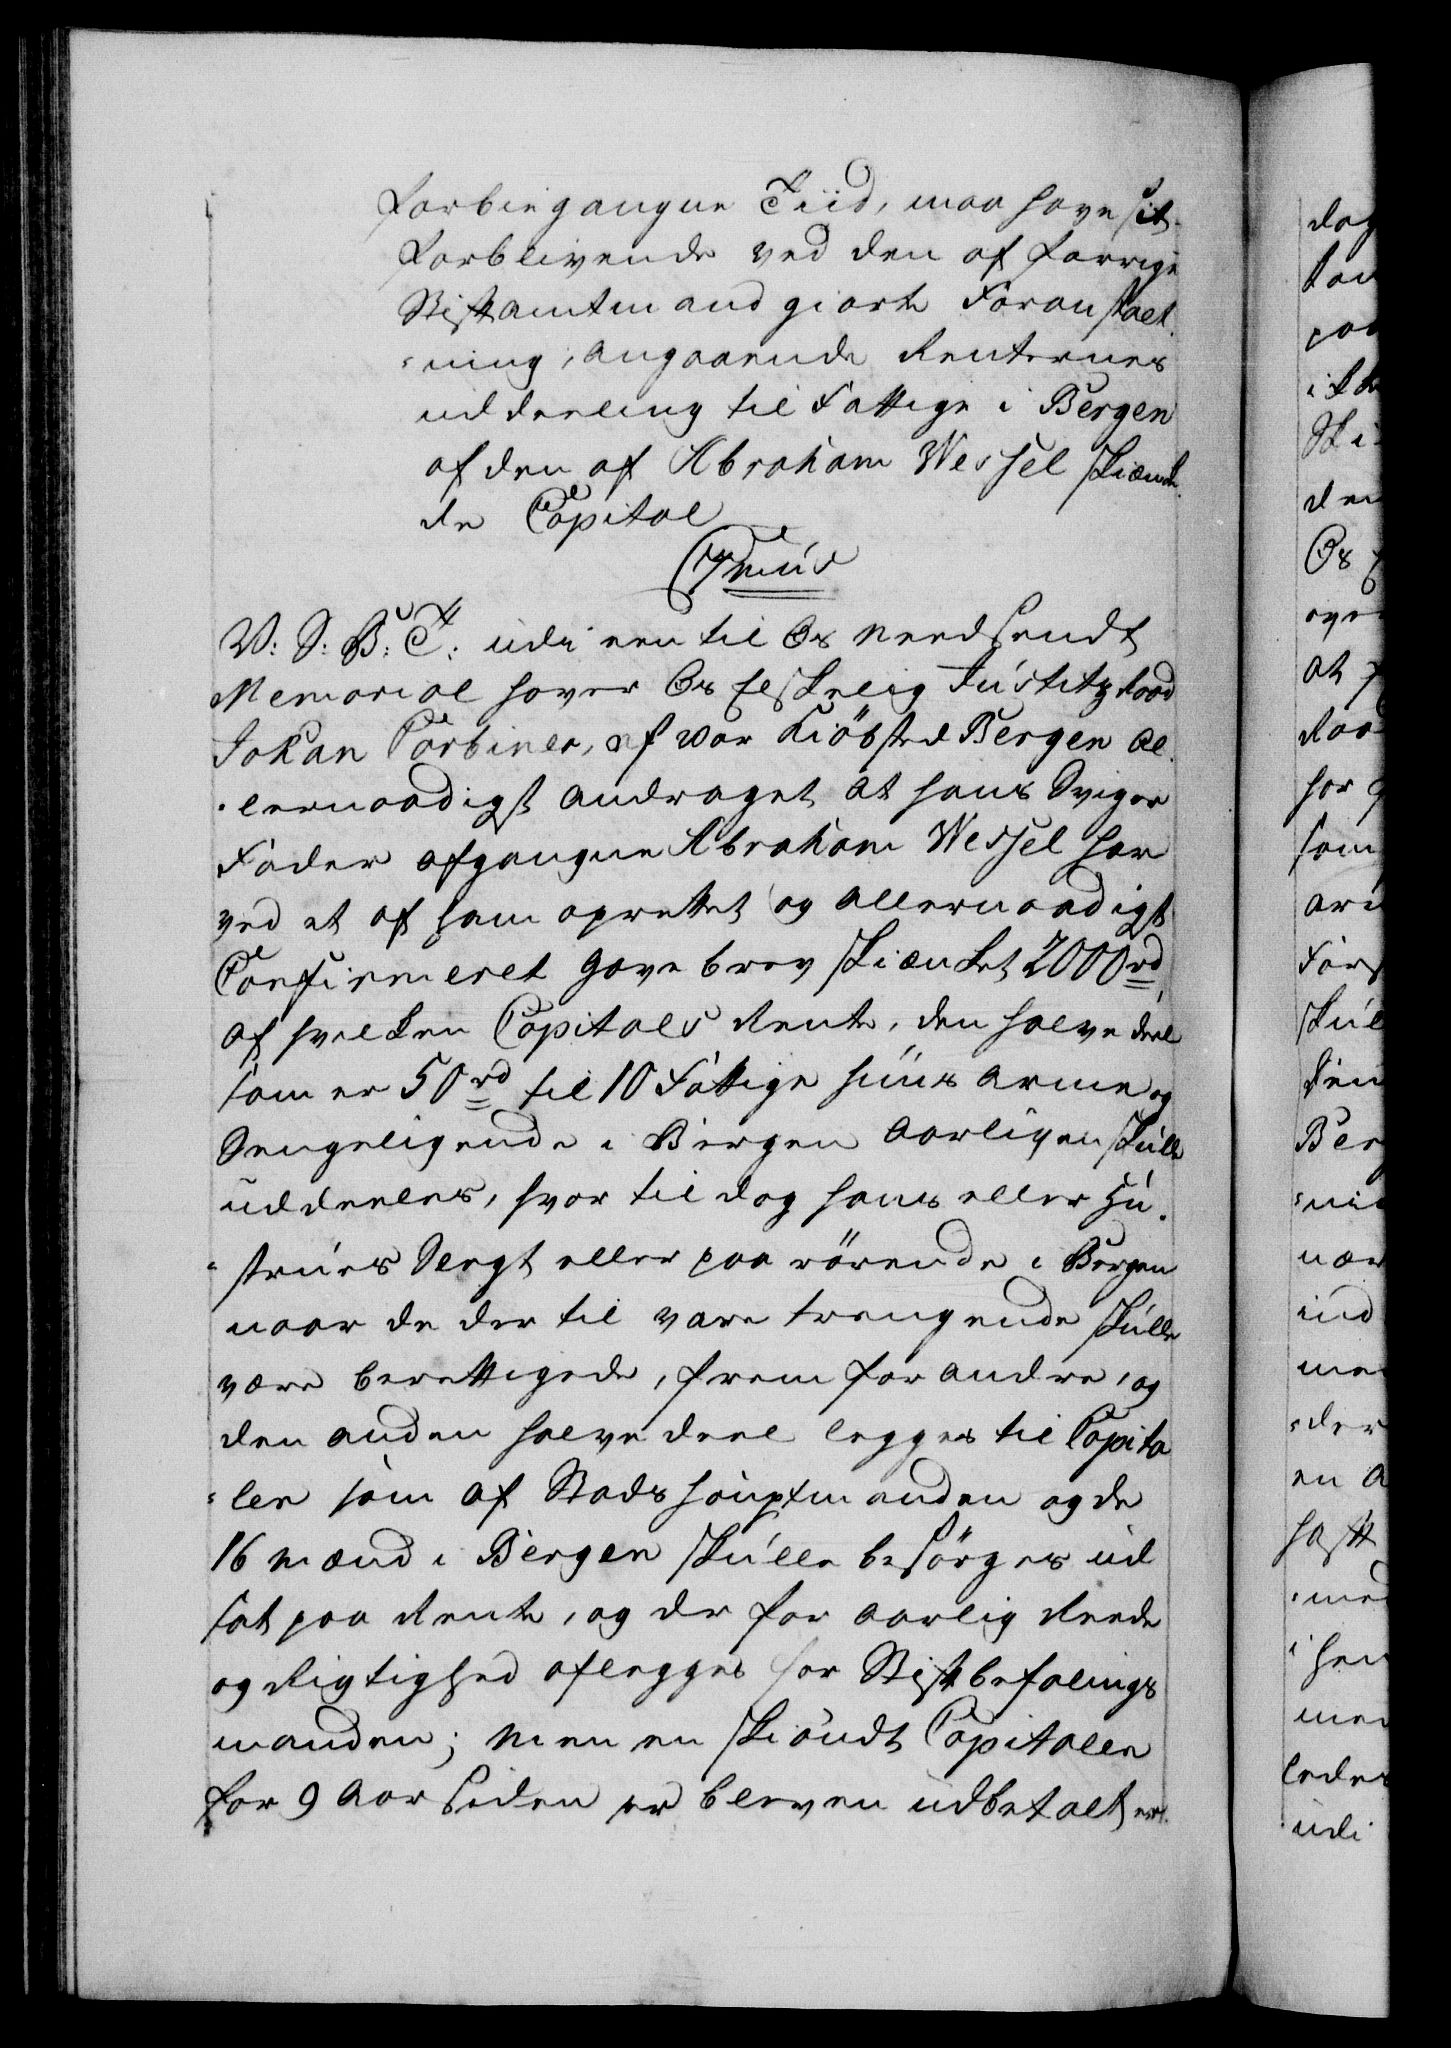 forbiegangne Tiid, maa have sit
Forblivende ved den af forrige
Stiftamtmand giorte Foranstalt-
-ning, angaaende Renternes
uddeeling til Fattige i Bergen
af den af Abraham Wessel skiænke-
de Capital
V: G: B: T: udi een til Os needsendt
Memorial haver Os Elskelig Justitz Raad
Johan Garbiner, af vor Kiöbsted Bergen al-
-lernaadigst andraget at hans Sviger
Fader afgangne Abraham Wessel har
ved et af ham oprettet og allernaadigst
Confirmeret Gavebrev skiænket 2000 rd,
af hvilken Capitals Rente, den halve deel
som er 50 rd til 10 Fattige huus arme og
Sengeligende i Bergen aarligen skulle
uddeeles, hvor til dog hans eller Hu-
-struес Slegt eller paarörende i Bergen
naar de der til vare trengende skulle
være berettigede, frem for andre, og
den anden halve deel legges til Capita
-len som af Stadshauptmanden og de
16 mænd i Bergen skulle besörges ud
sat paa Rente, og der for aarlig Reede
og Rigtighed aflegges for Stiftbefalings
manden; men en skiöndt Capitalen
for 9 Aar siden er bleven udbetalt
dog
paa
den
Os
at
har
som
Ber
ind
udi